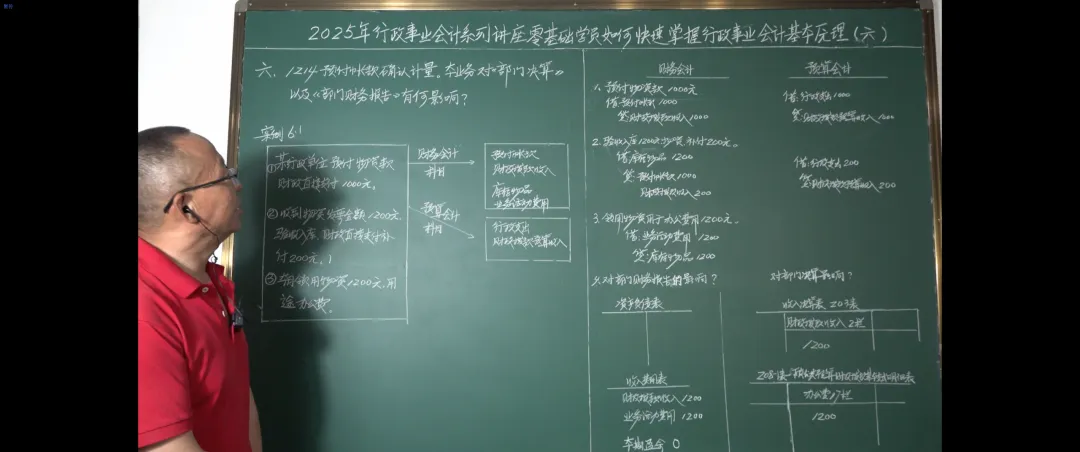 2025年行政事业会计系列讲座零基础学员如何快速掌握行政事业会计基本原理(六)
六、1214预付帐款确认计量。本业务对《部门决算》
以及《部门财务报告》有何影响?
案例6.1
①某行政单位预付物资款
财政直接支付1000元。
②收到物资结算金额1200元
验收入库、财政直接支付补
付200元。
③本月领用物资1200元,用
途办公费。
财务会计
科目
预算会计
科目
预付帐款
财政拨款收入
库存物品
业务活动费用
行政支出
财政拨款预算收入
财务会计
1、预付物资款1000元
借:预付帐款 1000
贷:财政拨款收入1000
2、验收入库1200元物资、补付200元。
借:库存物品 1200
贷:预付帐款1000
财政拨款收入 200
3、领用物资用于办公费用1200元。
借:业务活动费用 1200
贷:库存物品 1200
4、对部门财务报告的影响?
资产负债表
收入费用表
财政拨款收入 1200
业务活动费用 1200
本期盈余 0
预算会计
借:行政支出1000
贷:财政拨款预算收入 1000
借:行政支出 200
贷:财政拨款预算收入 200
对部门决算影响?
收入决算表 Z03表
财政拨款收入 2栏
1200
办公费17栏
1200